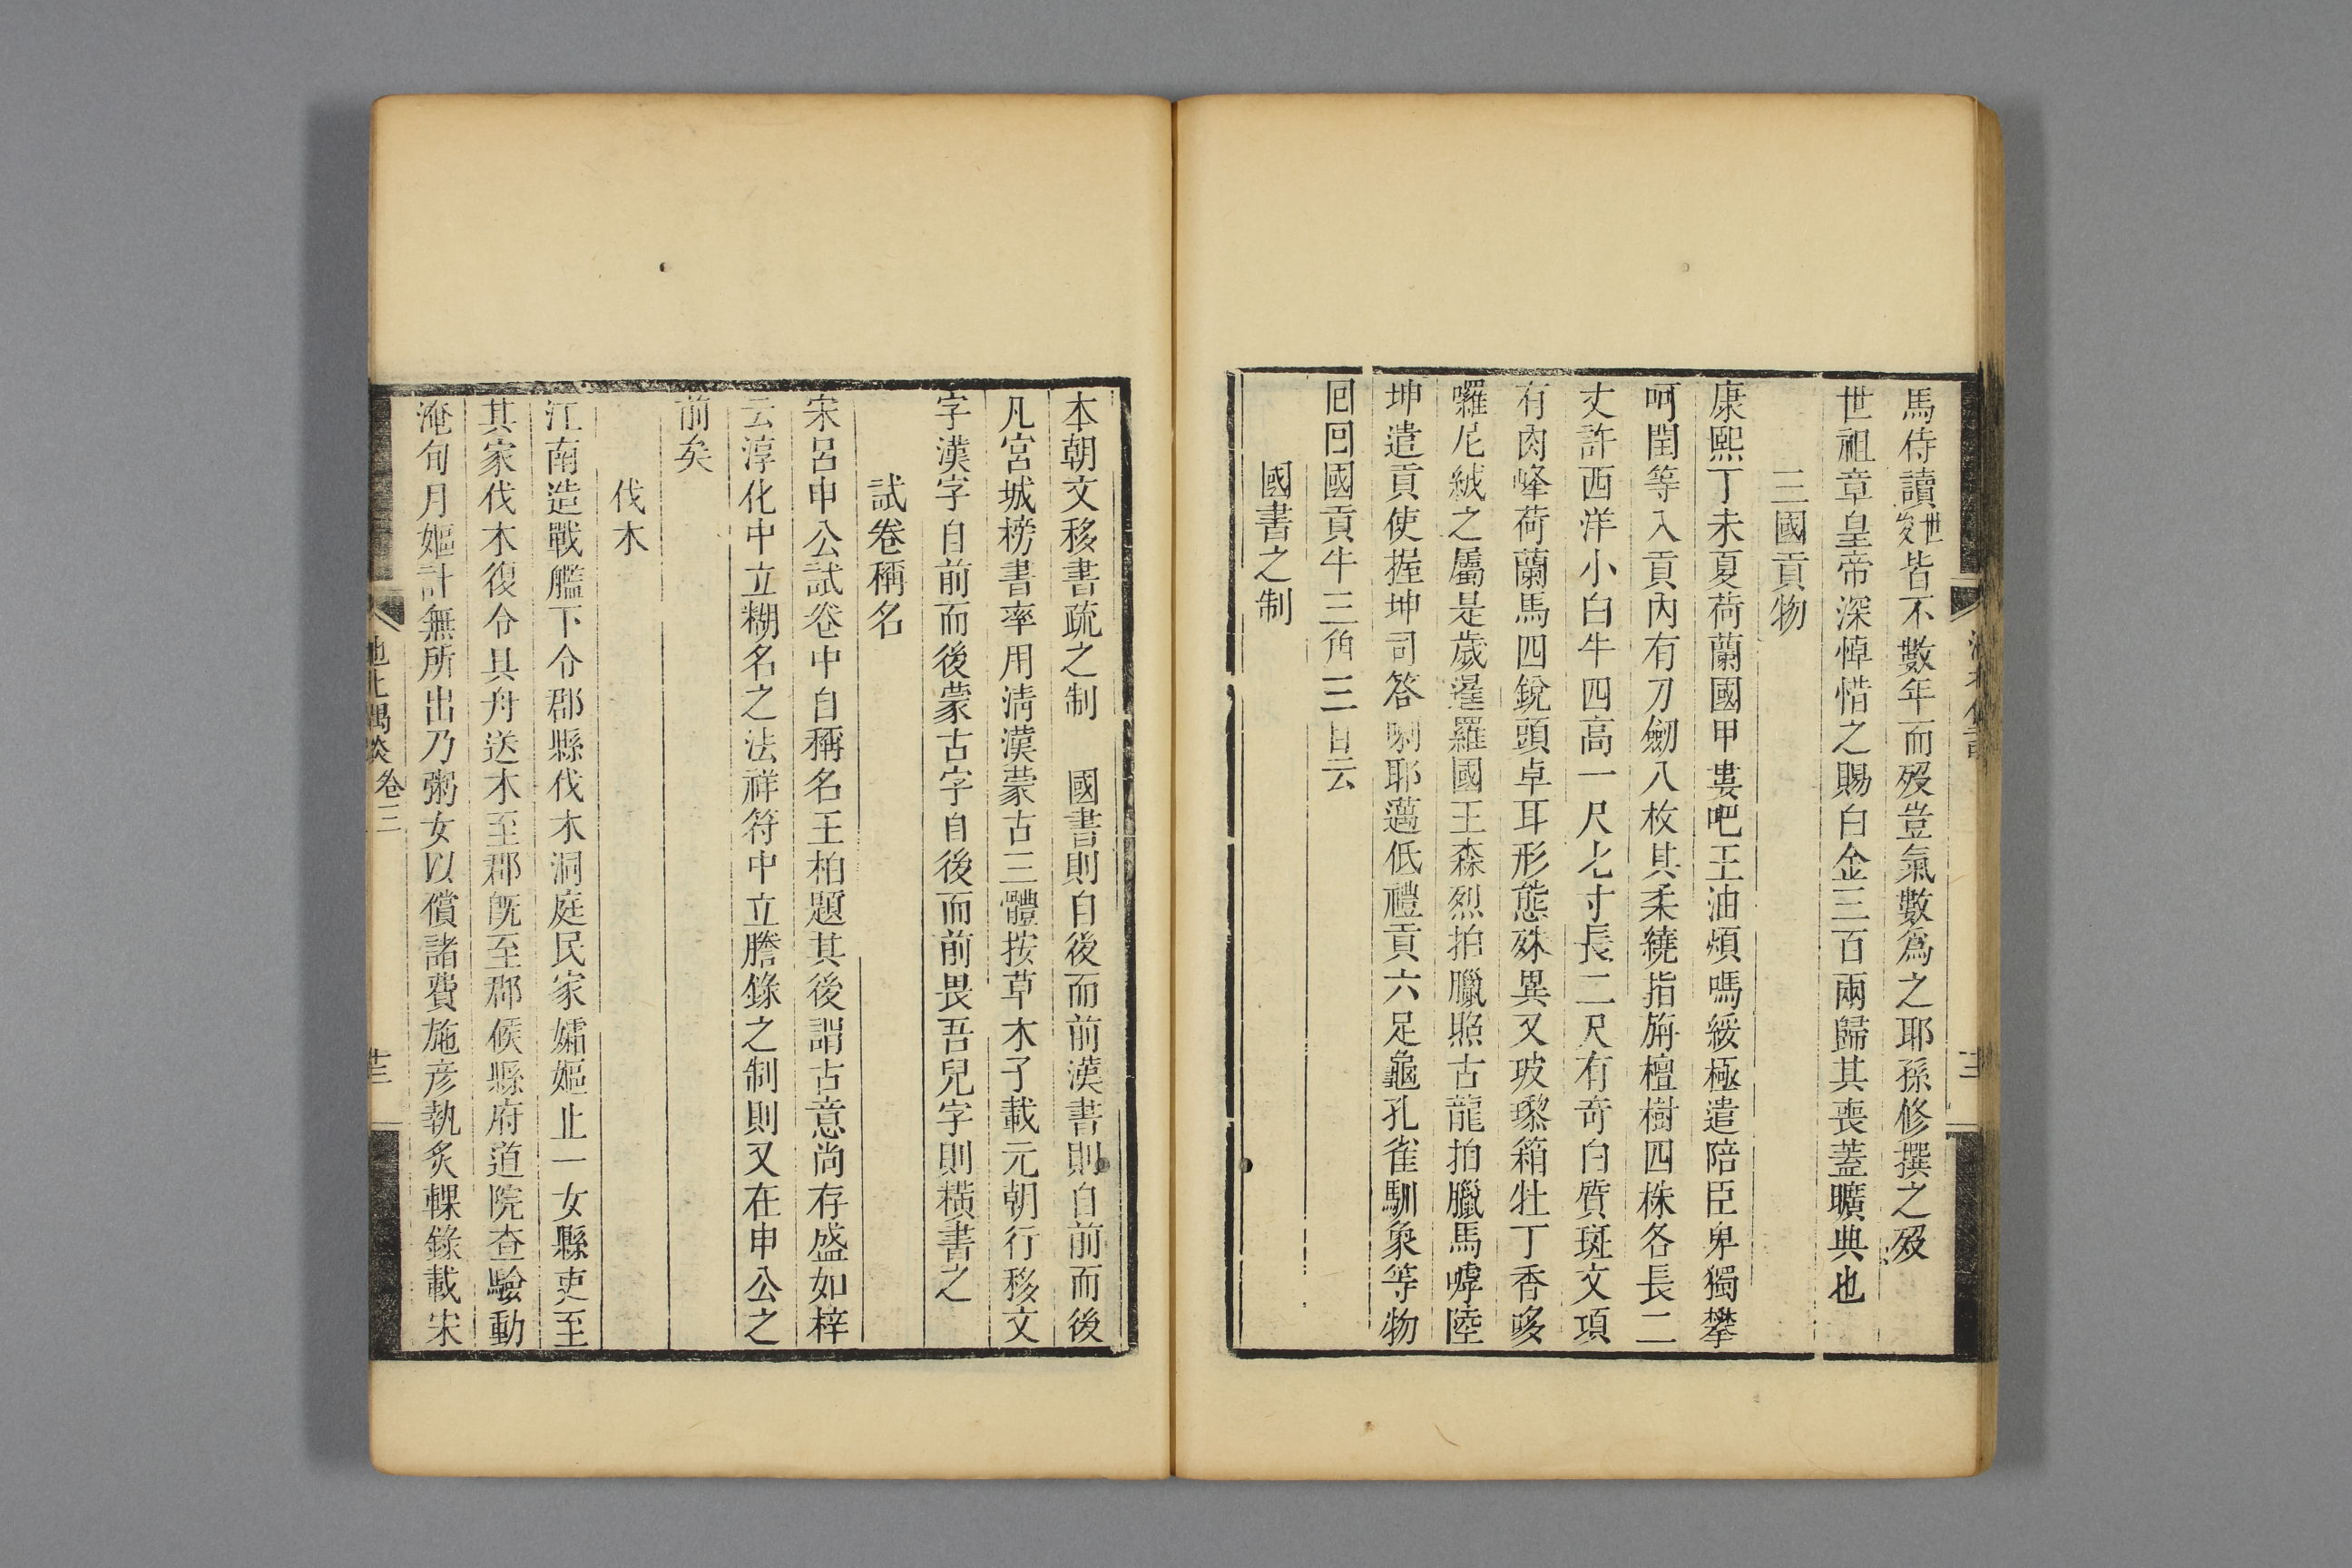 馬侍讀世俊皆不數年而歿豈氣數爲之耶孫修撰之歿
世祖章皇帝深悼惜之賜白金三百兩歸其喪蓋曠典也
三國貢物
康熙丁未夏荷蘭國甲婁吧王油煩嗎綏極遣陪臣卑獨攀
呵閏等入貢内有刀劒八枚其柔繞指旃檀樹四株各長二
丈許西洋小白牛四高一尺七寸長二尺有奇白質斑文項
有肉峰荷蘭馬四銳頭卓耳形態殊異又玻瓈箱牡丁香哆
囉尼絨之屬是歲暹羅國王森烈拍臘照古龍拍臘馬嘑陸
坤遣貢使握坤司答喇耶邁低禮貢六足龜孔雀馴象等物
囘囘國貢牛三角三目云
國書之制
本朝文移書疏之制　國書則自後而前漢書則自前而後
凡宮城榜書率用淸漢蒙古三體按草木子載元朝行移文
字漢字自前而後蒙古字自後而前畏吾兒字則橫書之
試卷稱名
宋呂申公試卷中自稱名王柏題其後謂古意尚存盛如梓
云淳化中立糊名之法祥符中立謄錄之制則又在申公之
前矣
伐木
江南造戰艦下令郡縣伐木洞庭民家孀嫗止一女縣吏至
其家伐木復令具舟送木至郡旣至郡候縣府道院查驗動
淹旬月嫗計無所出乃鬻女以償諸費施彦執炙輠錄載宋
池北偶談 卷三 廿三